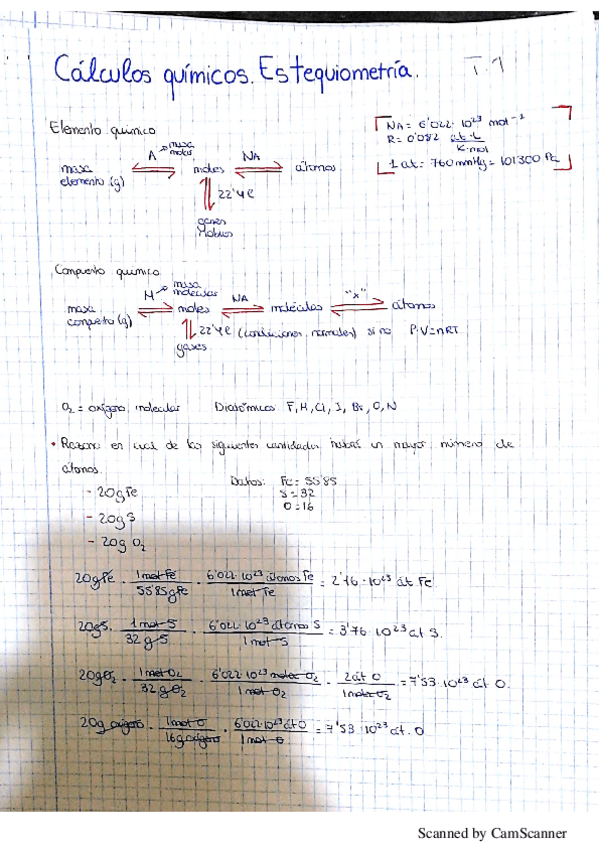 Cálculos químicos. Estequiometría. T.1
Elemento químico
NA = 6'022 · 10²³ mol⁻¹
R = 0'082 at·L / K·mol
1 at = 760 mmHg = 101300 Pa
masa elemento (g) A → masa molar moles NA átomos
22'4 l
gases nobles
Compuesto químico
masa compuesto (g) M → masa molecular moles NA moléculas "x" átomos
22'4 l (condiciones normales) si no P·V=nRT
gases
O₂ = oxígeno molecular Diatómicos F, H, Cl, I, Br, O, N
• Razona en cual de las siguientes cantidades habrá un mayor número de
átomos.
- 20g Fe
- 20g S
- 20g O₂
Datos: Fe = 55'85
S = 32
O = 16
20g Fe · 1 mol Fe / 55'85 g Fe · 6'022 · 10²³ átomos Fe / 1 mol Fe = 2'16 · 10²³ át Fe
20g S · 1 mol S / 32 g S · 6'022 · 10²³ átomos S / 1 mol S = 3'76 · 10²³ at S.
20g O₂ · 1 mol O₂ / 32 g O₂ · 6'022 · 10²³ molec O₂ / 1 mol O₂ · 2 át O / 1 molec O₂ = 7'53 · 10²³ át O.
20g oxígeno · 1 mol O / 16g oxígeno · 6'022·10²³ át O / 1 mol O = 7'53 · 10²³ at. O
Scanned by CamScanner